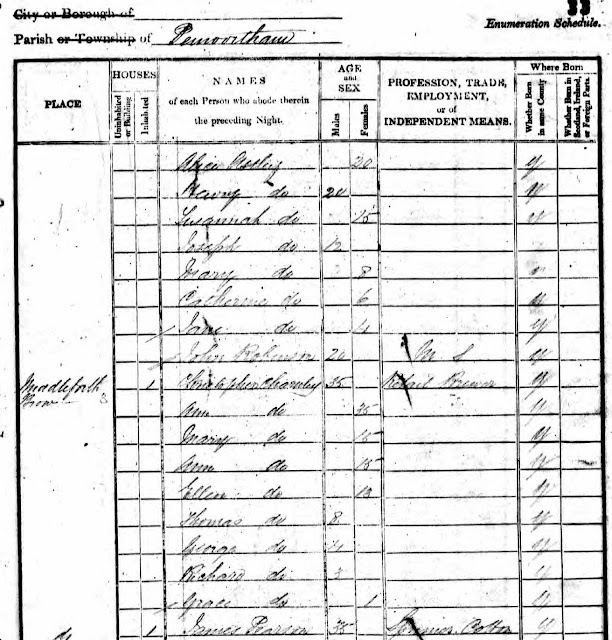 33
City or Borough of
Enumeration Schedule.
Parish or Township of Penwortham
PLACE
HOUSES
Uninhabited or Building
Inhabited
NAMES
of each Person who abode therein
the preceding Night.
AGE
and
SEX
Males
Females
PROFESSION, TRADE,
EMPLOYMENT,
or of
INDEPENDENT MEANS.
Where Born
Whether Born in same County
Whether Born in Scotland, Ireland, or Foreign Parts
Alice 20 y
Henry do 20 y
Susannah do 15 y
Joseph do 12
Mary do 8
Catherine do 6 y
Jane do 4 y
John Robinson 20 M S y
Middleforth 1 Christopher Charnley 35 Retail Brewer y
Brow
Ann do 35 y
Mary do 15 y
Ann do 15 y
Ellen do 13 y
Thomas do 8 y
George do 4 y
Richard do 3 y
Grace do 1 y
do 1 James Pearson 35 Cotton y